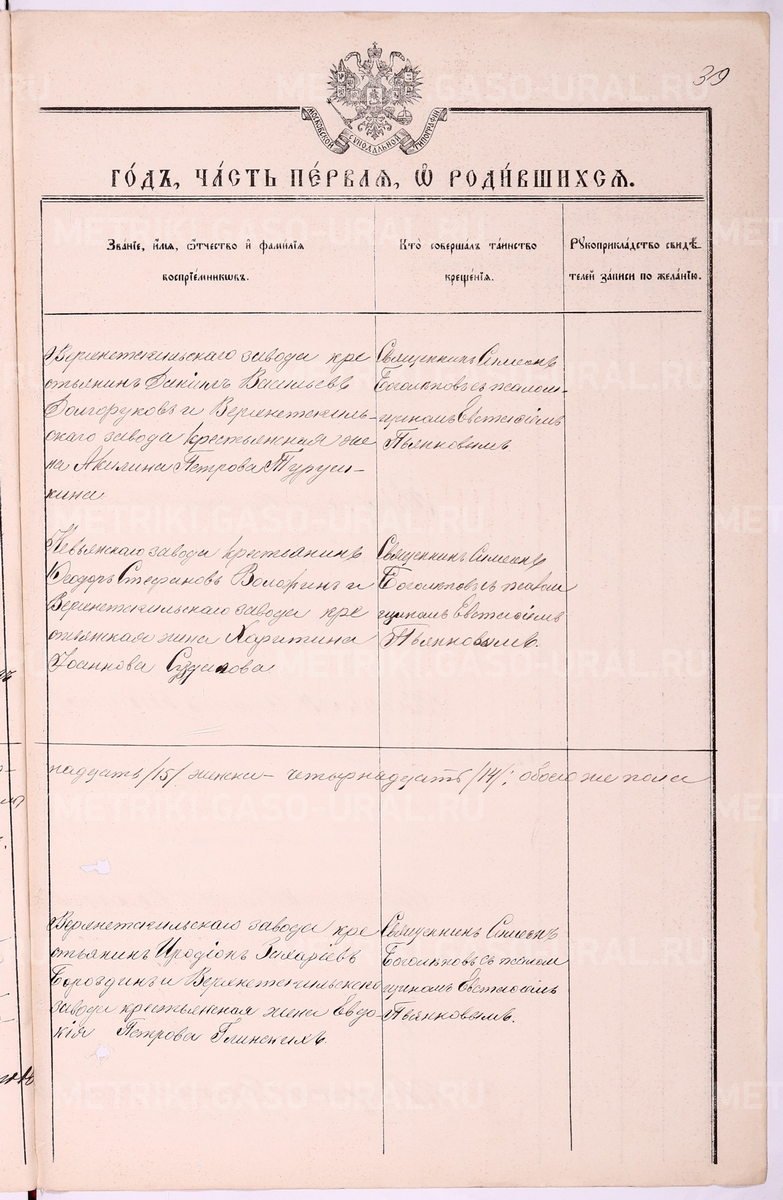 39
МОСКОВСКОЙ СѴНОДАЛЬНОЙ ТИПОГРАФІИ
ГО́ДЪ, ЧА́СТЬ ПЕ́РВАЯ, Ѡ҆ РОДИ́ВШИХСЯ.
Зва́нїе, и҆́мя, ѻ҆́тчество и҆ фами́лїя
воспрїе́мникѡвъ.
Кто̀ соверша́лъ та́инство
креще́нїя.
Рꙋкоприкла́дство свидѣ́-
телей за́писи по жела́нїю.
Верхнетагильскаго завода кре
стьянинъ Іакимъ Васильевъ
Долгоруковъ и Верхнетагиль-
скаго завода крестьянская же
на Акилина Петрова Туруш-
кина
Священникъ Симеонъ
Боголѣповъ съ псалом-
щикомъ Евстаѳіемъ
Пьянковымъ
Невьянскаго завода крестьянинъ
Ѳеодоръ Стефановъ Волоринъ и
Верхнетагильскаго завода кре
стьянская жена Харитина
Іоаннова
Священникъ Симеонъ
Боголѣповъ съ псалом
щикомъ Евстаѳіемъ
Пьянковымъ.
надцать /15/ женска – четырнадцать /14/; обоего же пола
Верхнетагильскаго завода кре
стьянинъ Иродіонъ Захаріевъ
Бороздинъ и Верхнетагильскаго
завода крестьянская жена Евдо-
кія Петрова Глинскихъ.
Священникъ Симеонъ
Боголѣповъ съ псалом
щикомъ Евстаѳіемъ
Пьянковымъ.
METRIKI.GASO-URAL.RU